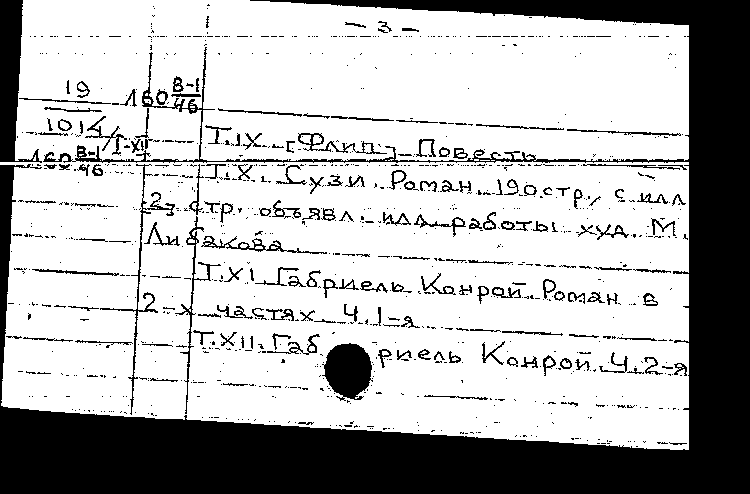 — 3 —
19
1014/I-XII
160 В-1/46
160 В-1/46
Т.IX [Флип] Повесть
Т.X. Сузи. Роман. 190 стр., с илл
[2] стр. объявл. илл. работы худ. М.
Либакова.
Т.XI Габриель Конрой. Роман в
2-х частях. Ч.1-я
Т.XII. Габриель Конрой. Ч.2-я